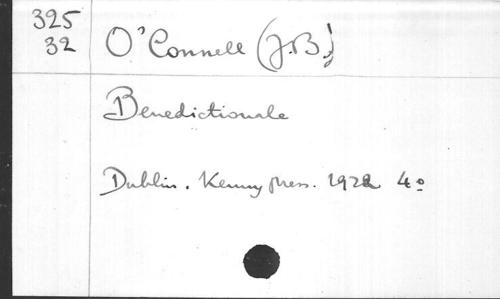 325
32
O'Connell (J.B.)
Benedictionale
Dublin. Kenny press. 1922 4o